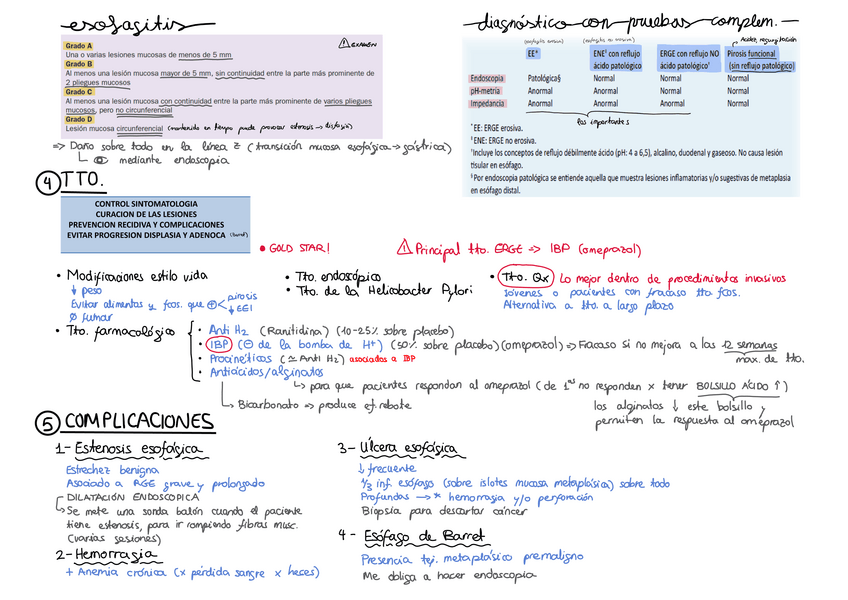 esofagitis
Grado A
⚠ EXAMEN
Una o varias lesiones mucosas de menos de 5 mm
Grado B
Al menos una lesión mucosa mayor de 5 mm, sin continuidad entre la parte más prominente de
2 pliegues mucosos
Grado C
Al menos una lesión mucosa con continuidad entre la parte más prominente de varios pliegues
mucosos, pero no circunferencial
Grado D
Lesión mucosa circunferencial (mantenida en tiempo puede provocar estenosis → disfagia)
=> Daño sobre todo en la línea Z (transición mucosa esofágica → gástrica)
mediante endoscopia
diagnóstico con pruebas complem.
(esofagitis erosiva) (esofagitis no erosiva) Acidez, regurgitación
EE* ENE‡ con reflujo ácido patológico ERGE con reflujo NO ácido patológico† Pirosis funcional (sin reflujo patológico)
Endoscopia Patológica§ Normal Normal Normal
pH-metría Anormal Anormal Normal Normal
Impedancia Anormal Anormal Anormal Normal
las importantes
*EE: ERGE erosiva.
‡ENE: ERGE no erosiva.
†Incluye los conceptos de reflujo débilmente ácido (pH: 4 a 6,5), alcalino, duodenal y gaseoso. No causa lesión
tisular en esófago.
§Por endoscopia patológica se entiende aquella que muestra lesiones inflamatorias y/o sugestivas de metaplasia
en esófago distal.
4 TTO.
CONTROL SINTOMATOLOGIA
CURACION DE LAS LESIONES
PREVENCION RECIDIVA Y COMPLICACIONES
EVITAR PROGRESION DISPLASIA Y ADENOCA (barret)
• GOLD STAR!
⚠ Principal tto. ERGE => IBP (omeprazol)
• Modificaciones estilo vida
↓ peso
Evitar alimentos y fcos. que ⊕ < pirosis
↓ EEI
∅ fumar
• Tto. endoscópico
• Tto. de la Helicobacter Pylori
• Tto. Qx Lo mejor dentro de procedimientos invasivos
Jóvenes o pacientes con fracaso tto fcos.
Alternativa a tto. a largo plazo
• Tto. farmacológico
• Anti H2 (Ranitidina) (10-25% sobre placebo)
• IBP (⊖ de la bomba de H+) (50% sobre placebo) (omeprazol) => Fracaso si no mejora a las 12 semanas
max. de tto.
• Procinéticos (≃ Anti H2) asociados a IBP
• Antiácidos/alginatos
↳ para que pacientes respondan al omeprazol (de 1as no responden x tener BOLSILLO ÁCIDO ↑)
↳ Bicarbonato => produce ef. rebote
los alginatos ↓ este bolsillo y
permiten la respuesta al omeprazol
5 COMPLICACIONES
1- Estenosis esofágica
Estrechez benigna
Asociado a RGE grave y prolongado
DILATACIÓN ENDOSCOPICA
Se mete una sonda balón cuando el paciente
tiene estenosis, para ir rompiendo fibras musc.
(varias sesiones)
2- Hemorragia
+ Anemia crónica (x pérdida sangre x heces)
3- Úlcera esofágica
↓ frecuente
1/3 inf. esófago (sobre islotes mucosa metaplásica) sobre todo
Profundas → * hemorragia y/o perforación
Biopsia para descartar cáncer
4- Esófago de Barret
Presencia tej. metaplásico premaligno
Me obliga a hacer endoscopia